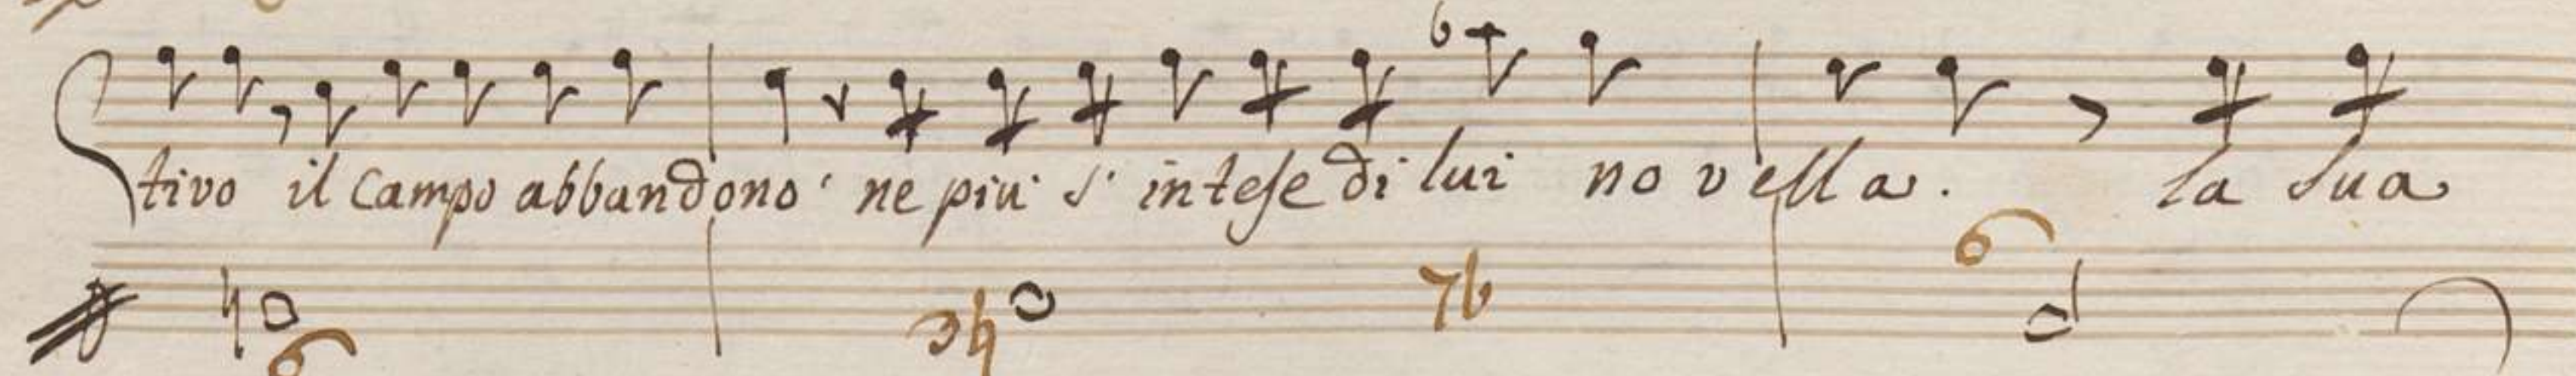 tivo il campo abbandono' ne piu' s' intese di lui novella. la sua
6 3♮ 7b 6